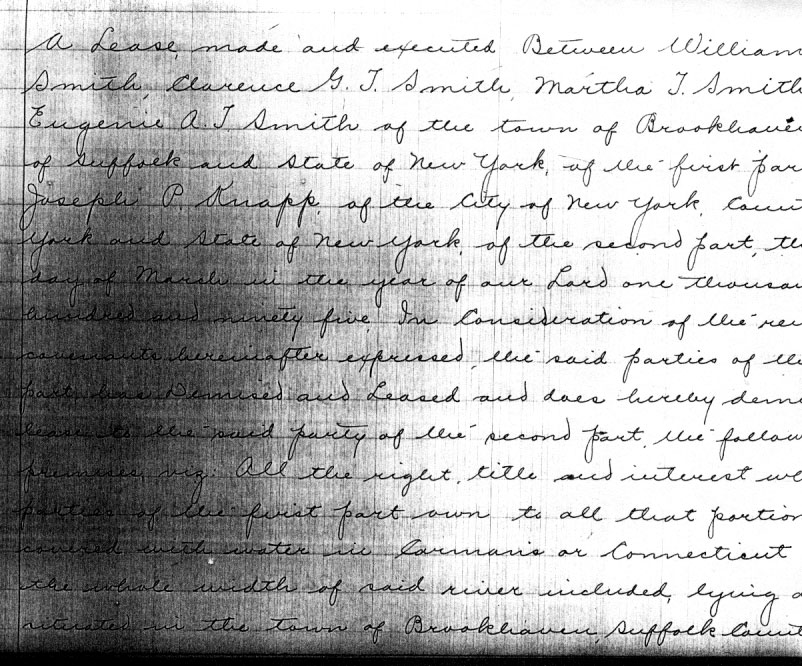 A Lease, made and executed Between William
Smith, Clarence G. T. Smith, Martha T. Smith
Eugenie A. T Smith of the town of Brookhaven
of Suffolk and State of New York, of the first par
Joseph P. Knapp, of the City of New York, Count
York and State of New York, of the second part, th
day of March in the year of our Lord one thousan
hundred and ninety five. In Consideration of the ren
covenants hereinafter expressed, the said parties of the
part, has Demised and Leased and does hereby demi
lease to the said party of the second part, the follow
premises, viz: All the right, title and interest wh
parties of the first part own to all that portion
covered with water in Carmans or Connecticut
the whole width of said river included, lying a
situated in the town of Brookhaven, Suffolk Count